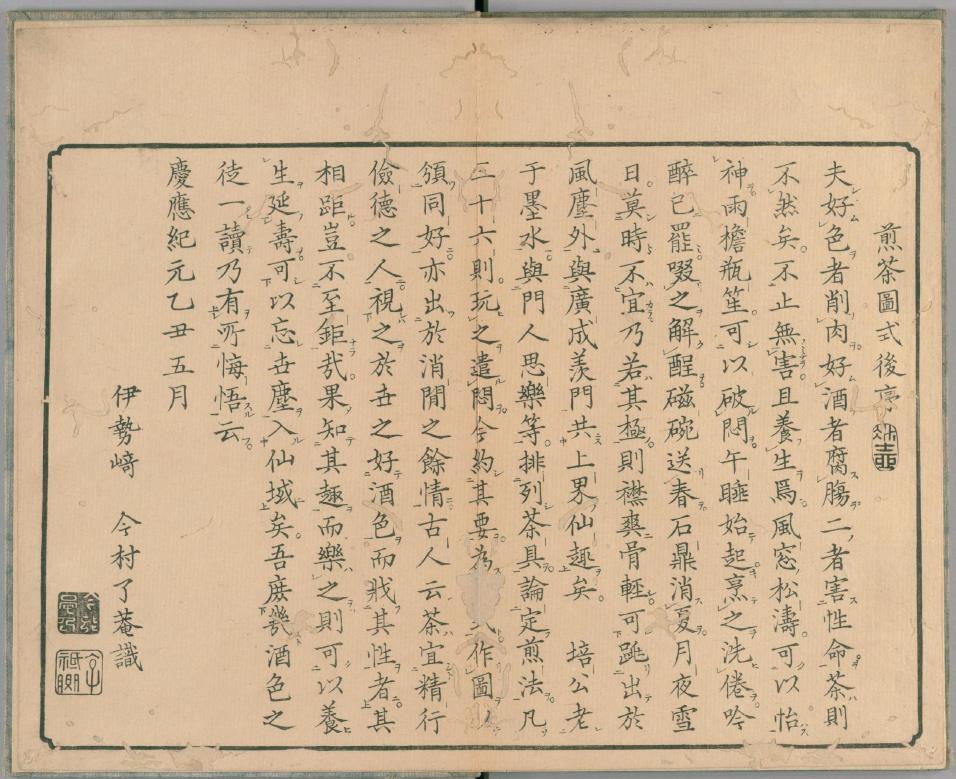 煎茶圖式後序
夫好色者削肉好酒者腐膓二者害性命茶則
不然矣不止無害且養生焉風窓松濤可以怡
神雨檐瓶笙可以破悶午睡始起烹之洗倦吟
醉已罷啜之解酲磁碗送春石鼎消夏月夜雪
日莫時不宜乃若其極則襟爽骨輕可跳出於
風塵外與廣成羨門共上界仙趣矣 培公老
于墨水與門人思樂等排列茶具論定煎法凡
三十六則玩之遣悶今約其要為 作圖以
頒同好亦出於消閒之餘情古人云茶宜精行
儉德之人視之於世之好酒色而戕其性者其
相距豈不至鉅哉果知其趣而樂之則可以養
生延壽可以忘世塵入仙域矣吾庶幾酒色之
徒一讀乃有所悔悟云
慶應紀元乙丑五月
伊勢﨑 今村了菴識